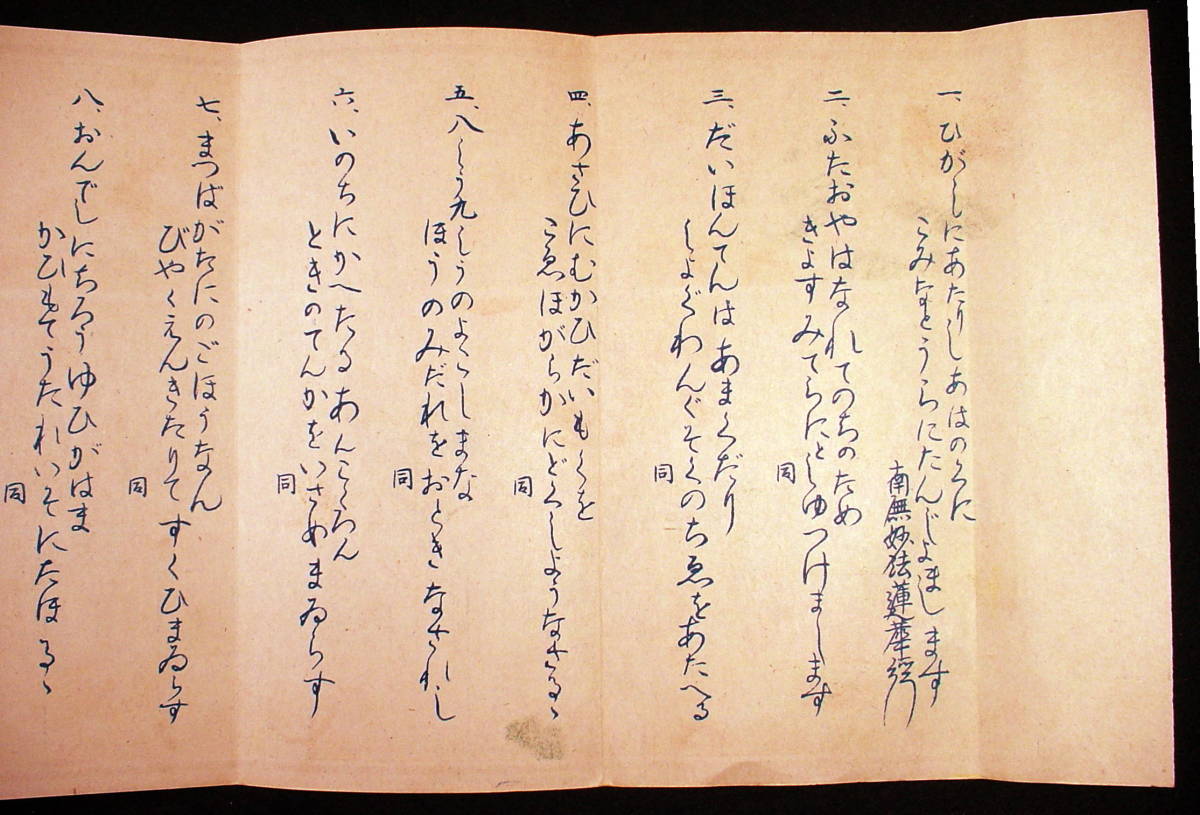 一、ひがしにあたりしあはのくに
こみなとうらにたんじよまします
南無妙法蓮華経
二、ふたおやはなれてのちのため
きよすみてらにとしゆつけまします
同
三、だいぼんてんはあまくだり
しよぐわんぐそくのちゑをあたへる
同
四、あさひにむかひだいもくを
こゑほがらかにどくしようなさるゝ
同
五、八しう九しうのよこしまな
ほうのみだれをおときなされし
同
六、いのちにかへたるあんころん
ときのてんかをいさめまゐらす
同
七、まつばがたにのごほうなん
びやくえんきたりてすくひまゐらす
同
八、おんでしにちろうゆひがはま
かひもてうたれいそにたほるゝ
同